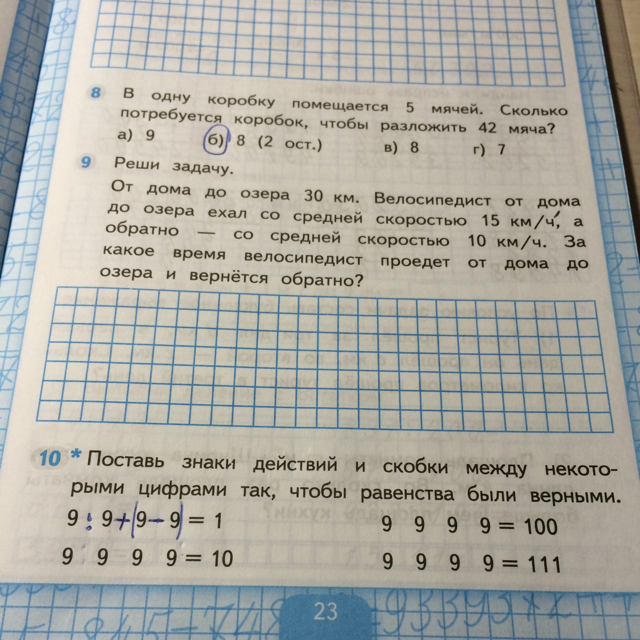 8 В одну коробку помещается 5 мячей. Сколько
потребуется коробок, чтобы разложить 42 мяча?
а) 9 б) 8 (2 ост.) в) 8 г) 7
9 Реши задачу.
От дома до озера 30 км. Велосипедист от дома
до озера ехал со средней скоростью 15 км/ч, а
обратно — со средней скоростью 10 км/ч. За
какое время велосипедист проедет от дома до
озера и вернётся обратно?
10 * Поставь знаки действий и скобки между некото-
рыми цифрами так, чтобы равенства были верными.
9 : 9 + (9 − 9) = 1 9 9 9 9 = 100
9 9 9 9 = 10 9 9 9 9 = 111
23